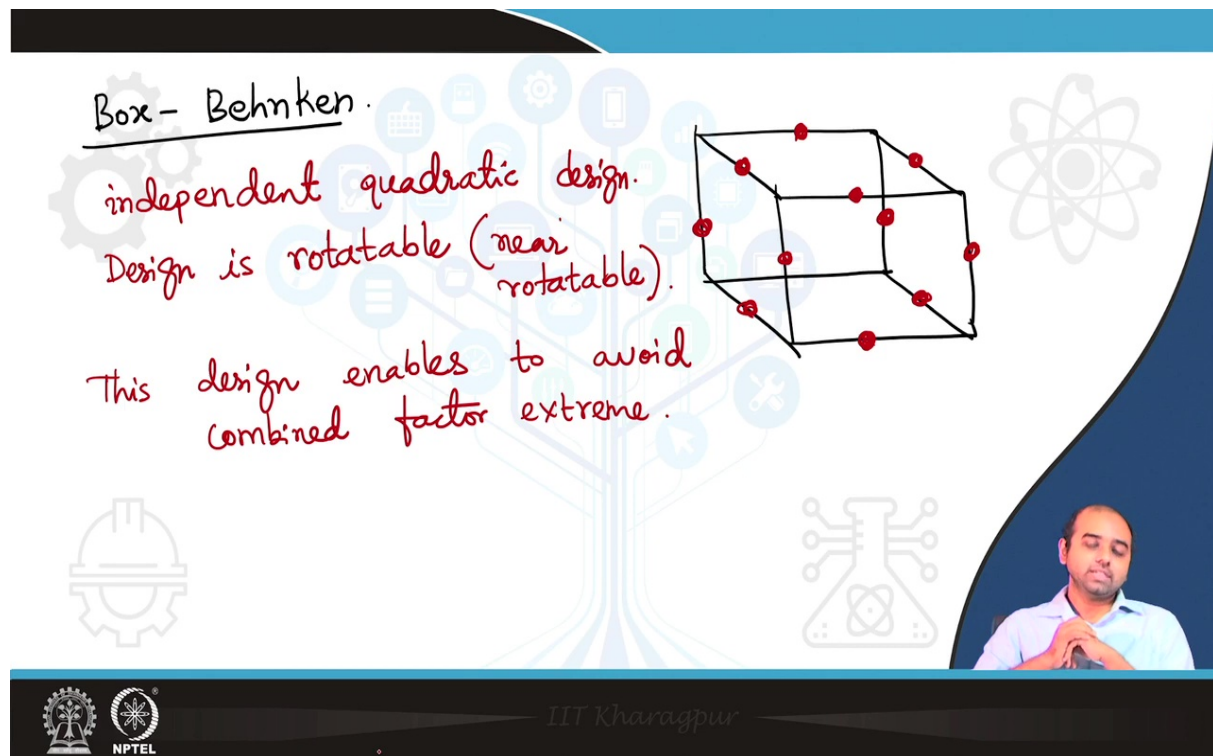 Box - Behnken.
independent quadratic design.
Design is rotatable (near
rotatable).
This design enables to avoid
combined factor extreme.
IIT Kharagpur
NPTEL